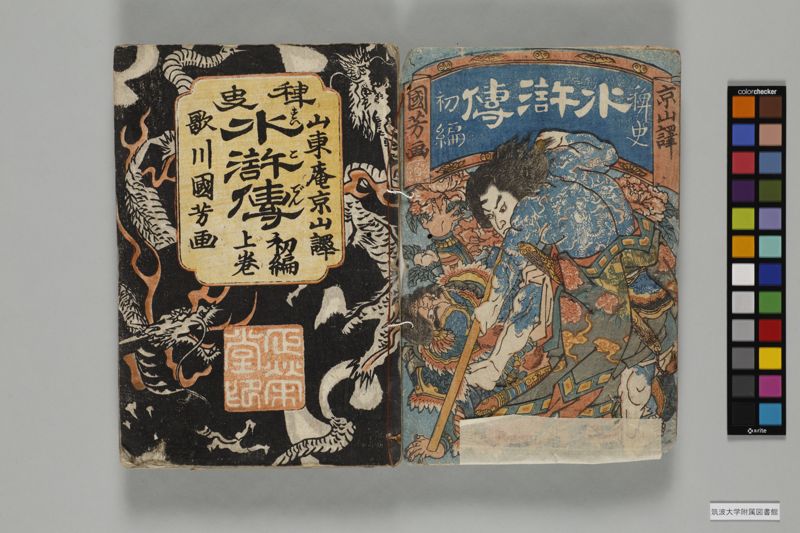 京山譯
稗史
水滸傳
初編
國芳画
稗史
山東庵京山譯
水滸傳
すゐこでん
初編
上巻
歌川國芳画
colorchecker
x-rite
筑波大学附属図書館